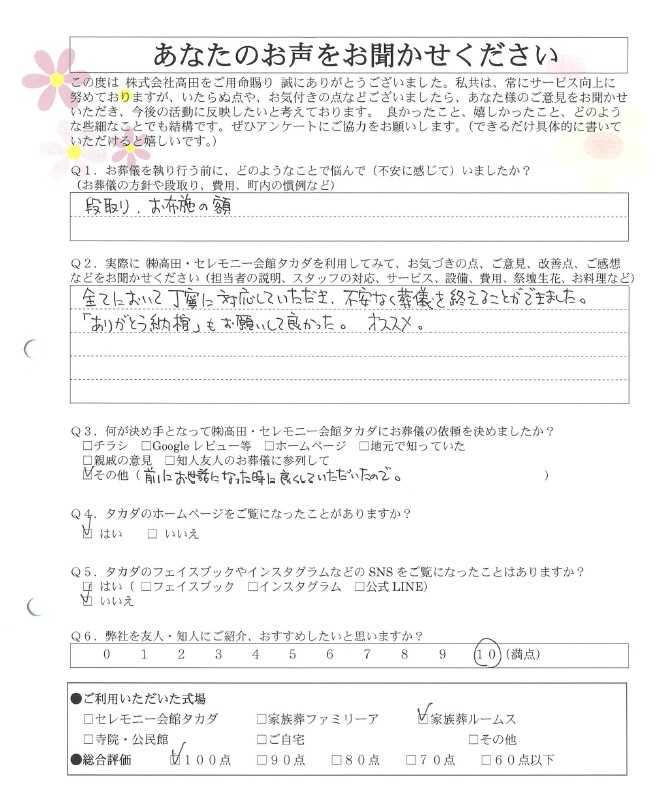 あなたのお声をお聞かせください
この度は 株式会社高田をご用命賜り 誠にありがとうございました。私共は、常にサービス向上に
努めておりますが、いたらぬ点や、お気付きの点などございましたら、あなた様のご意見をお聞かせ
いただき、今後の活動に反映したいと考えております。 良かったこと、嬉しかったこと、どのよう
な些細なことでも結構です。ぜひアンケートにご協力をお願いします。（できるだけ具体的に書いて
いただけると嬉しいです。）
Q１．お葬儀を執り行う前に、どのようなことで悩んで（不安に感じて）いましたか？
（お葬儀の方針や段取り、費用、町内の慣例など）
段取り．お布施の額
Q２．実際に ㈱高田・セレモニー会館タカダを利用してみて、お気づきの点、ご意見、改善点、ご感想
などをお聞かせください（担当者の説明、スタッフの対応、サービス、設備、費用、祭壇生花、お料理など）
全てにおいて丁寧に対応していただき、不安なく葬儀を終えることができました。
「ありがとう納棺」もお願いして良かった。 オススメ。
Q３．何が決め手となって㈱高田・セレモニー会館タカダにお葬儀の依頼を決めましたか？
□チラシ □Google レビュー等 □ホームページ □地元で知っていた
□親戚の意見 □知人友人のお葬儀に参列して
☑その他（前にお世話になった時に良くしていただいたので。）
Q４．タカダのホームページをご覧になったことがありますか？
☑ はい □ いいえ
Q５．タカダのフェイスブックやインスタグラムなどの SNS をご覧になったことはありますか？
□ はい（ □フェイスブック □インスタグラム □公式 LINE）
☑ いいえ
Q６．弊社を友人・知人にご紹介、おすすめしたいと思いますか？
0 1 2 3 4 5 6 7 8 9 10（満点）
●ご利用いただいた式場
□セレモニー会館タカダ □家族葬ファミリーア ☑家族葬ルームス
□寺院・公民館 □ご自宅 □その他
●総合評価 ☑１００点 □９０点 □８０点 □７０点 □６０点以下